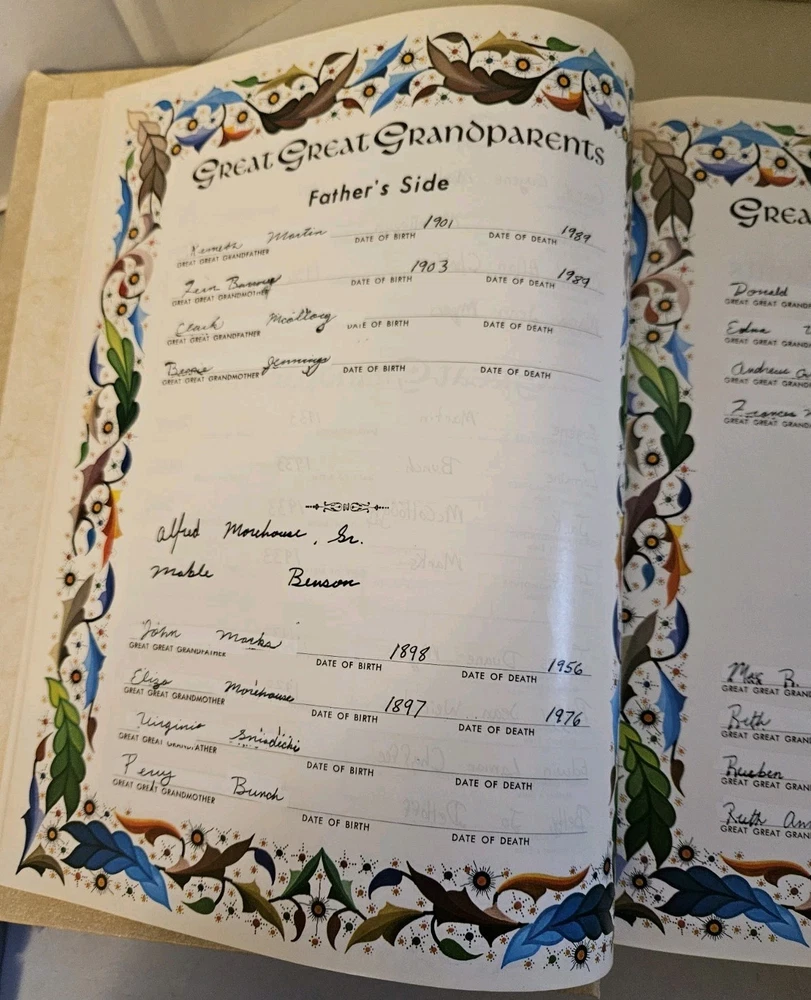 Great Great Grandparents
Father's Side
Martin 1901 1989
GREAT GREAT GRANDFATHER DATE OF BIRTH DATE OF DEATH
Fern 1903 1989
GREAT GREAT GRANDMOTHER DATE OF BIRTH DATE OF DEATH
Clark
GREAT GREAT GRANDFATHER DATE OF BIRTH DATE OF DEATH
Jennings
GREAT GREAT GRANDMOTHER DATE OF BIRTH DATE OF DEATH
Alfred Morehouse, Sr.
Mable Benson
John Marks 1898 1956
GREAT GREAT GRANDFATHER DATE OF BIRTH DATE OF DEATH
Eliza Morehouse 1897 1976
GREAT GREAT GRANDMOTHER DATE OF BIRTH DATE OF DEATH
Virginia
GREAT GREAT GRANDFATHER DATE OF BIRTH DATE OF DEATH
Perry Bunch
GREAT GREAT GRANDMOTHER DATE OF BIRTH DATE OF DEATH
Grea
Donald
GREAT GREAT GRAND
Edna
GREAT GREAT GRAND
Andrew
GREAT GREAT GRAND
Frances
GREAT GREAT GRAND
Max R.
GREAT GREAT GRAN
Beth
GREAT GREAT GRAN
Reuben
GREAT GREAT GRAN
Ruth Ann
GREAT GREAT GRAN